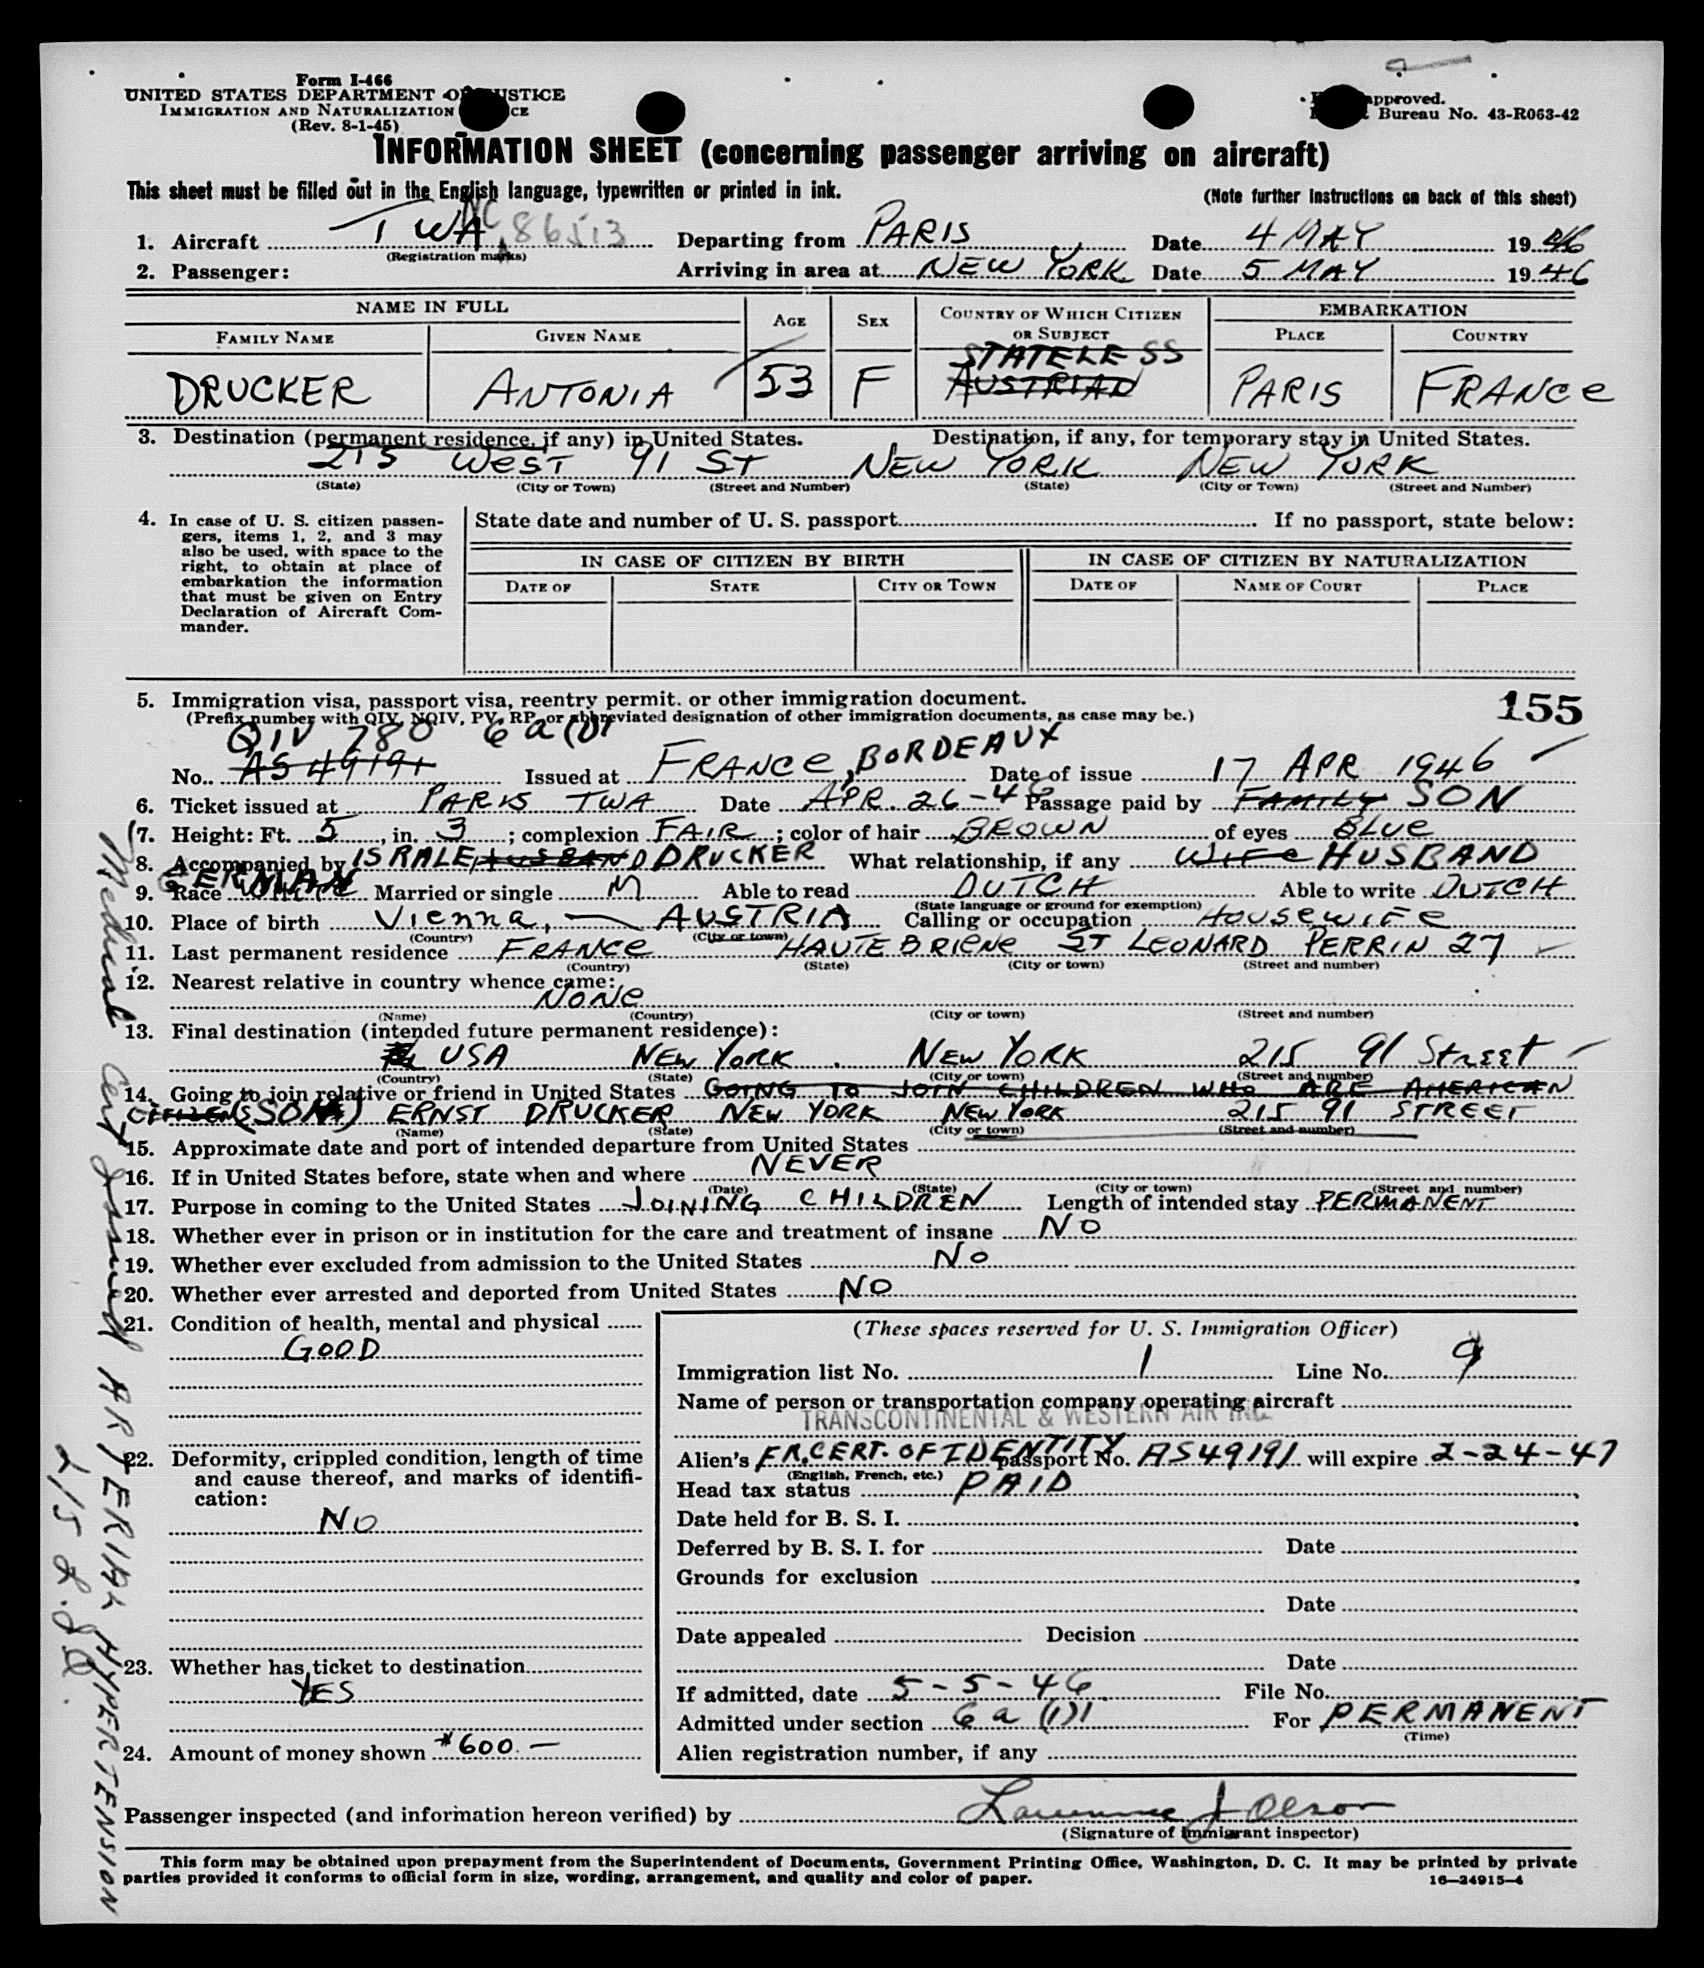 Form I-466
UNITED STATES DEPARTMENT OF JUSTICE
IMMIGRATION AND NATURALIZATION
(Rev. 8-1-45)
approved.
Bureau No. 43-R063-42
INFORMATION SHEET (concerning passenger arriving on aircraft)
This sheet must be filled out in the English language, typewritten or printed in ink.
(Note further instructions on back of this sheet)
1. Aircraft TWA NC 86513 Departing from PARIS, Date 4 MAY 1946
(Registration marks)
2. Passenger: Arriving in area at NEW YORK Date 5 MAY 1946
NAME IN FULL AGE SEX COUNTRY OF WHICH CITIZEN OR SUBJECT EMBARKATION
FAMILY NAME GIVEN NAME PLACE COUNTRY
STATELESS
DRUCKER ANTONIA 53 F AUSTRIAN PARIS FRANCE
3. Destination (permanent residence, if any) in United States. Destination, if any, for temporary stay in United States.
215 WEST 91 ST NEW YORK NEW YORK
(State) (City or Town) (Street and Number) (State) (City or Town) (Street and Number)
4. In case of U. S. citizen passen-
gers, items 1, 2, and 3 may
also be used, with space to the
right, to obtain at place of
embarkation the information
that must be given on Entry
Declaration of Aircraft Com-
mander.
State date and number of U. S. passport If no passport, state below:
IN CASE OF CITIZEN BY BIRTH IN CASE OF CITIZEN BY NATURALIZATION
DATE OF STATE CITY OR TOWN DATE OF NAME OF COURT PLACE
5. Immigration visa, passport visa, reentry permit, or other immigration document.
155
(Prefix number with QIV, NQIV, PV, RP, or abbreviated designation of other immigration documents, as case may be.)
QIV 780 6a(1)
No. AS 49191 Issued at FRANCE, BORDEAUX Date of issue 17 APR 1946
6. Ticket issued at PARIS TWA Date APR. 26-46 Passage paid by FAMILY SON
7. Height: Ft. 5, in. 3; complexion FAIR; color of hair BROWN of eyes BLUE
8. Accompanied by ISRALE, HUSBAND DRUCKER What relationship, if any WIFE HUSBAND
GERMAN
9. Race WHITE Married or single M Able to read DUTCH Able to write DUTCH
(State language or ground for exemption)
10. Place of birth Vienna, AUSTRIA Calling or occupation HOUSEWIFE
(Country) (City or town)
11. Last permanent residence FRANCE HAUTE BRIENE ST LEONARD PERRIN 27
(Country) (State) (City or town) (Street and number)
12. Nearest relative in country whence came:
NONE
(Name) (Country) (City or town) (Street and number)
13. Final destination (intended future permanent residence):
USA NEW YORK. NEW YORK 215 91 Street
(Country) (State) (City or town) (Street and number)
14. Going to join relative or friend in United States GOING TO JOIN CHILDREN WHO ARE AMERICAN
CITIZENS (SON) ERNST DRUCKER NEW YORK NEW YORK 215 91 STREET
(Name) (State) (City or town) (Street and number)
15. Approximate date and port of intended departure from United States
16. If in United States before, state when and where NEVER
(Date) (State) (City or town) (Street and number)
17. Purpose in coming to the United States JOINING CHILDREN Length of intended stay PERMANENT
18. Whether ever in prison or in institution for the care and treatment of insane NO
19. Whether ever excluded from admission to the United States NO
20. Whether ever arrested and deported from United States NO
21. Condition of health, mental and physical
GOOD
22. Deformity, crippled condition, length of time
and cause thereof, and marks of identifi-
cation:
NO
23. Whether has ticket to destination
YES
24. Amount of money shown $600.—
(These spaces reserved for U. S. Immigration Officer)
Immigration list No. 1 Line No. 9
Name of person or transportation company operating aircraft
TRANSCONTINENTAL & WESTERN AIR INC.
Alien's FR. CERT. OF IDENTITY passport No. AS49191 will expire 2-24-47
(English, French, etc.)
Head tax status PAID
Date held for B. S. I.
Deferred by B. S. I. for Date
Grounds for exclusion
Date
Date appealed Decision
Date
If admitted, date 5-5-46 File No.
Admitted under section 6a (1)1 For PERMANENT
(Time)
Alien registration number, if any
Passenger inspected (and information hereon verified) by Lawrence J Olson
(Signature of immigrant inspector)
This form may be obtained upon prepayment from the Superintendent of Documents, Government Printing Office, Washington, D. C. It may be printed by private
parties provided it conforms to official form in size, wording, arrangement, and quality and color of paper.
16—24915-4
Medical Cert Issued ARTERIAL HYPERTENSION
215